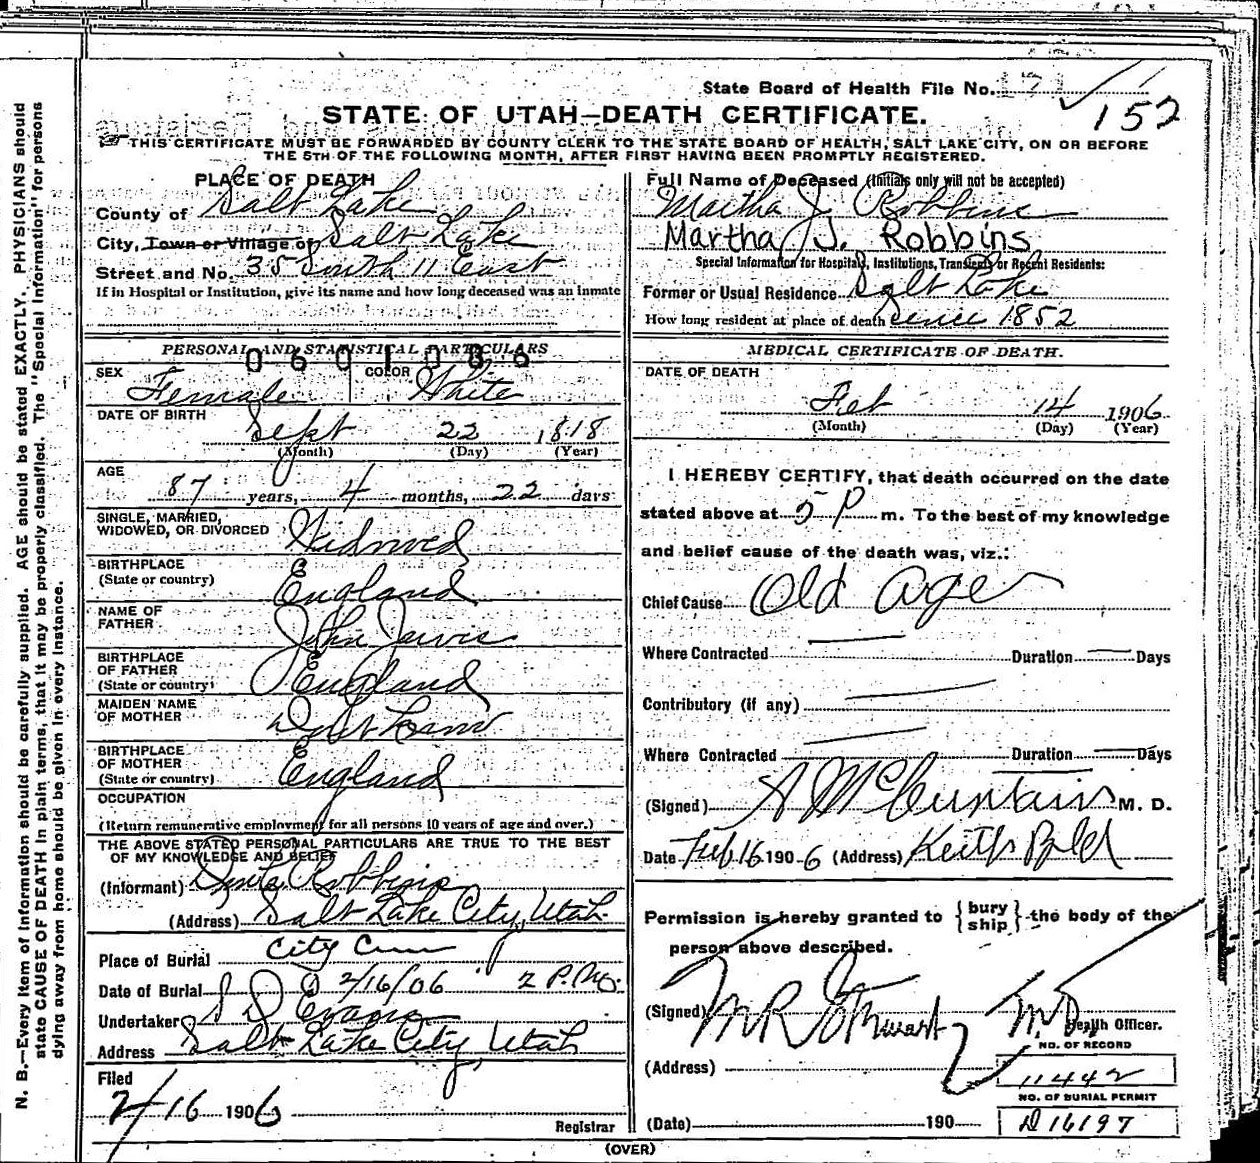 State Board of Health File No. 171
152
STATE OF UTAH—DEATH CERTIFICATE.
THIS CERTIFICATE MUST BE FORWARDED BY COUNTY CLERK TO THE STATE BOARD OF HEALTH, SALT LAKE CITY, ON OR BEFORE
THE 5TH OF THE FOLLOWING MONTH, AFTER FIRST HAVING BEEN PROMPTLY REGISTERED.
N. B.—Every item of information should be carefully supplied. AGE should be stated EXACTLY. PHYSICIANS should
state CAUSE OF DEATH in plain terms, that it may be properly classified. The "Special Information" for persons
dying away from home should be given in every instance.
PLACE OF DEATH
County of Salt Lake
City, Town or Village of Salt Lake
Street and No. 35 South 11 East
If in Hospital or Institution, give its name and how long deceased was an inmate
PERSONAL AND STATISTICAL PARTICULARS
0601086
SEX Female COLOR White
DATE OF BIRTH
Sept 22 1818
(Month) (Day) (Year)
AGE
87 years, 4 months, 22 days
SINGLE, MARRIED,
WIDOWED, OR DIVORCED Widowed
BIRTHPLACE
(State or country) England
NAME OF
FATHER John Jarvis
BIRTHPLACE
OF FATHER
(State or country) England
MAIDEN NAME
OF MOTHER Don't Know
BIRTHPLACE
OF MOTHER
(State or country) England
OCCUPATION
(Return remunerative employment for all persons 10 years of age and over.)
THE ABOVE STATED PERSONAL PARTICULARS ARE TRUE TO THE BEST
OF MY KNOWLEDGE AND BELIEF
(Informant) Robbins
(Address) Salt Lake City, Utah
Place of Burial City Cem
Date of Burial 2/16/06 2 P.M.
Undertaker S D Evans
Address Salt Lake City, Utah
Filed
2/16 1906
Registrar
Full Name of Deceased (Initials only will not be accepted)
Martha J. Robbins
Martha J. Robbins
Special Information for Hospitals, Institutions, Transients or Recent Residents:
Former or Usual Residence Salt Lake
How long resident at place of death Since 1852
MEDICAL CERTIFICATE OF DEATH.
DATE OF DEATH
Feb 14 1906
(Month) (Day) (Year)
I HEREBY CERTIFY, that death occurred on the date
stated above at 5 P m. To the best of my knowledge
and belief cause of the death was, viz.:
Chief Cause Old age
Where Contracted Duration Days
Contributory (if any)
Where Contracted Duration Days
(Signed) M. D.
Date Feb 16 1906 (Address) Keith Bld
Permission is hereby granted to {bury ship} the body of the
person above described.
(Signed) M R Stewart M.D. Health Officer.
NO. OF RECORD
(Address) 11442
NO. OF BURIAL PERMIT
(Date) 190 D 16197
(OVER)